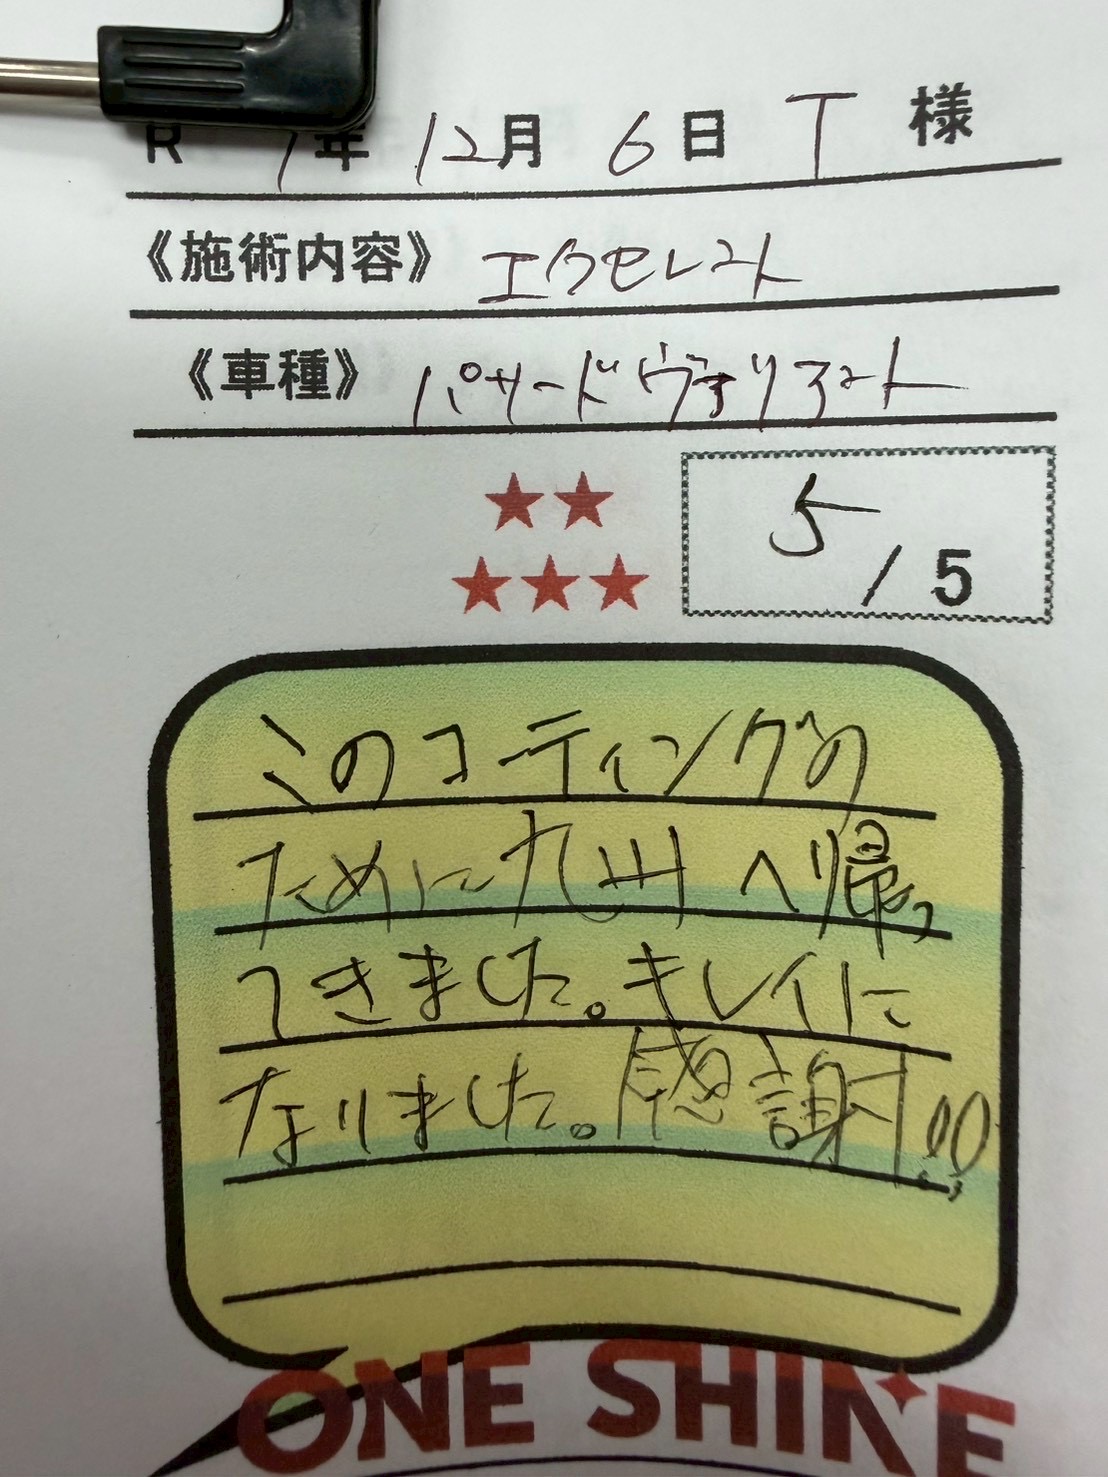 R 7年 12月 6日 T 様
《施術内容》 エクセレント
《車種》 パサードヴァリアント
★★
★★★
5/5
このコーティングの
ために九州へ帰っ
てきました。キレイに
なりました。感謝!!
ONE SHINE